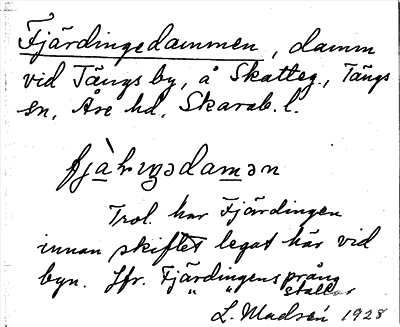 Fjärdingedammen, damm
vid Tängs by, å Skatteg., Tängs
sn, Åse hd, Skarab. l.
fjàhr̥ŋədamən
Trol. har Fjärdingen
innan skiftet legat här vid
byn. Jfr. Fjärdingens präng
" " stallar
L. Madsén 1928